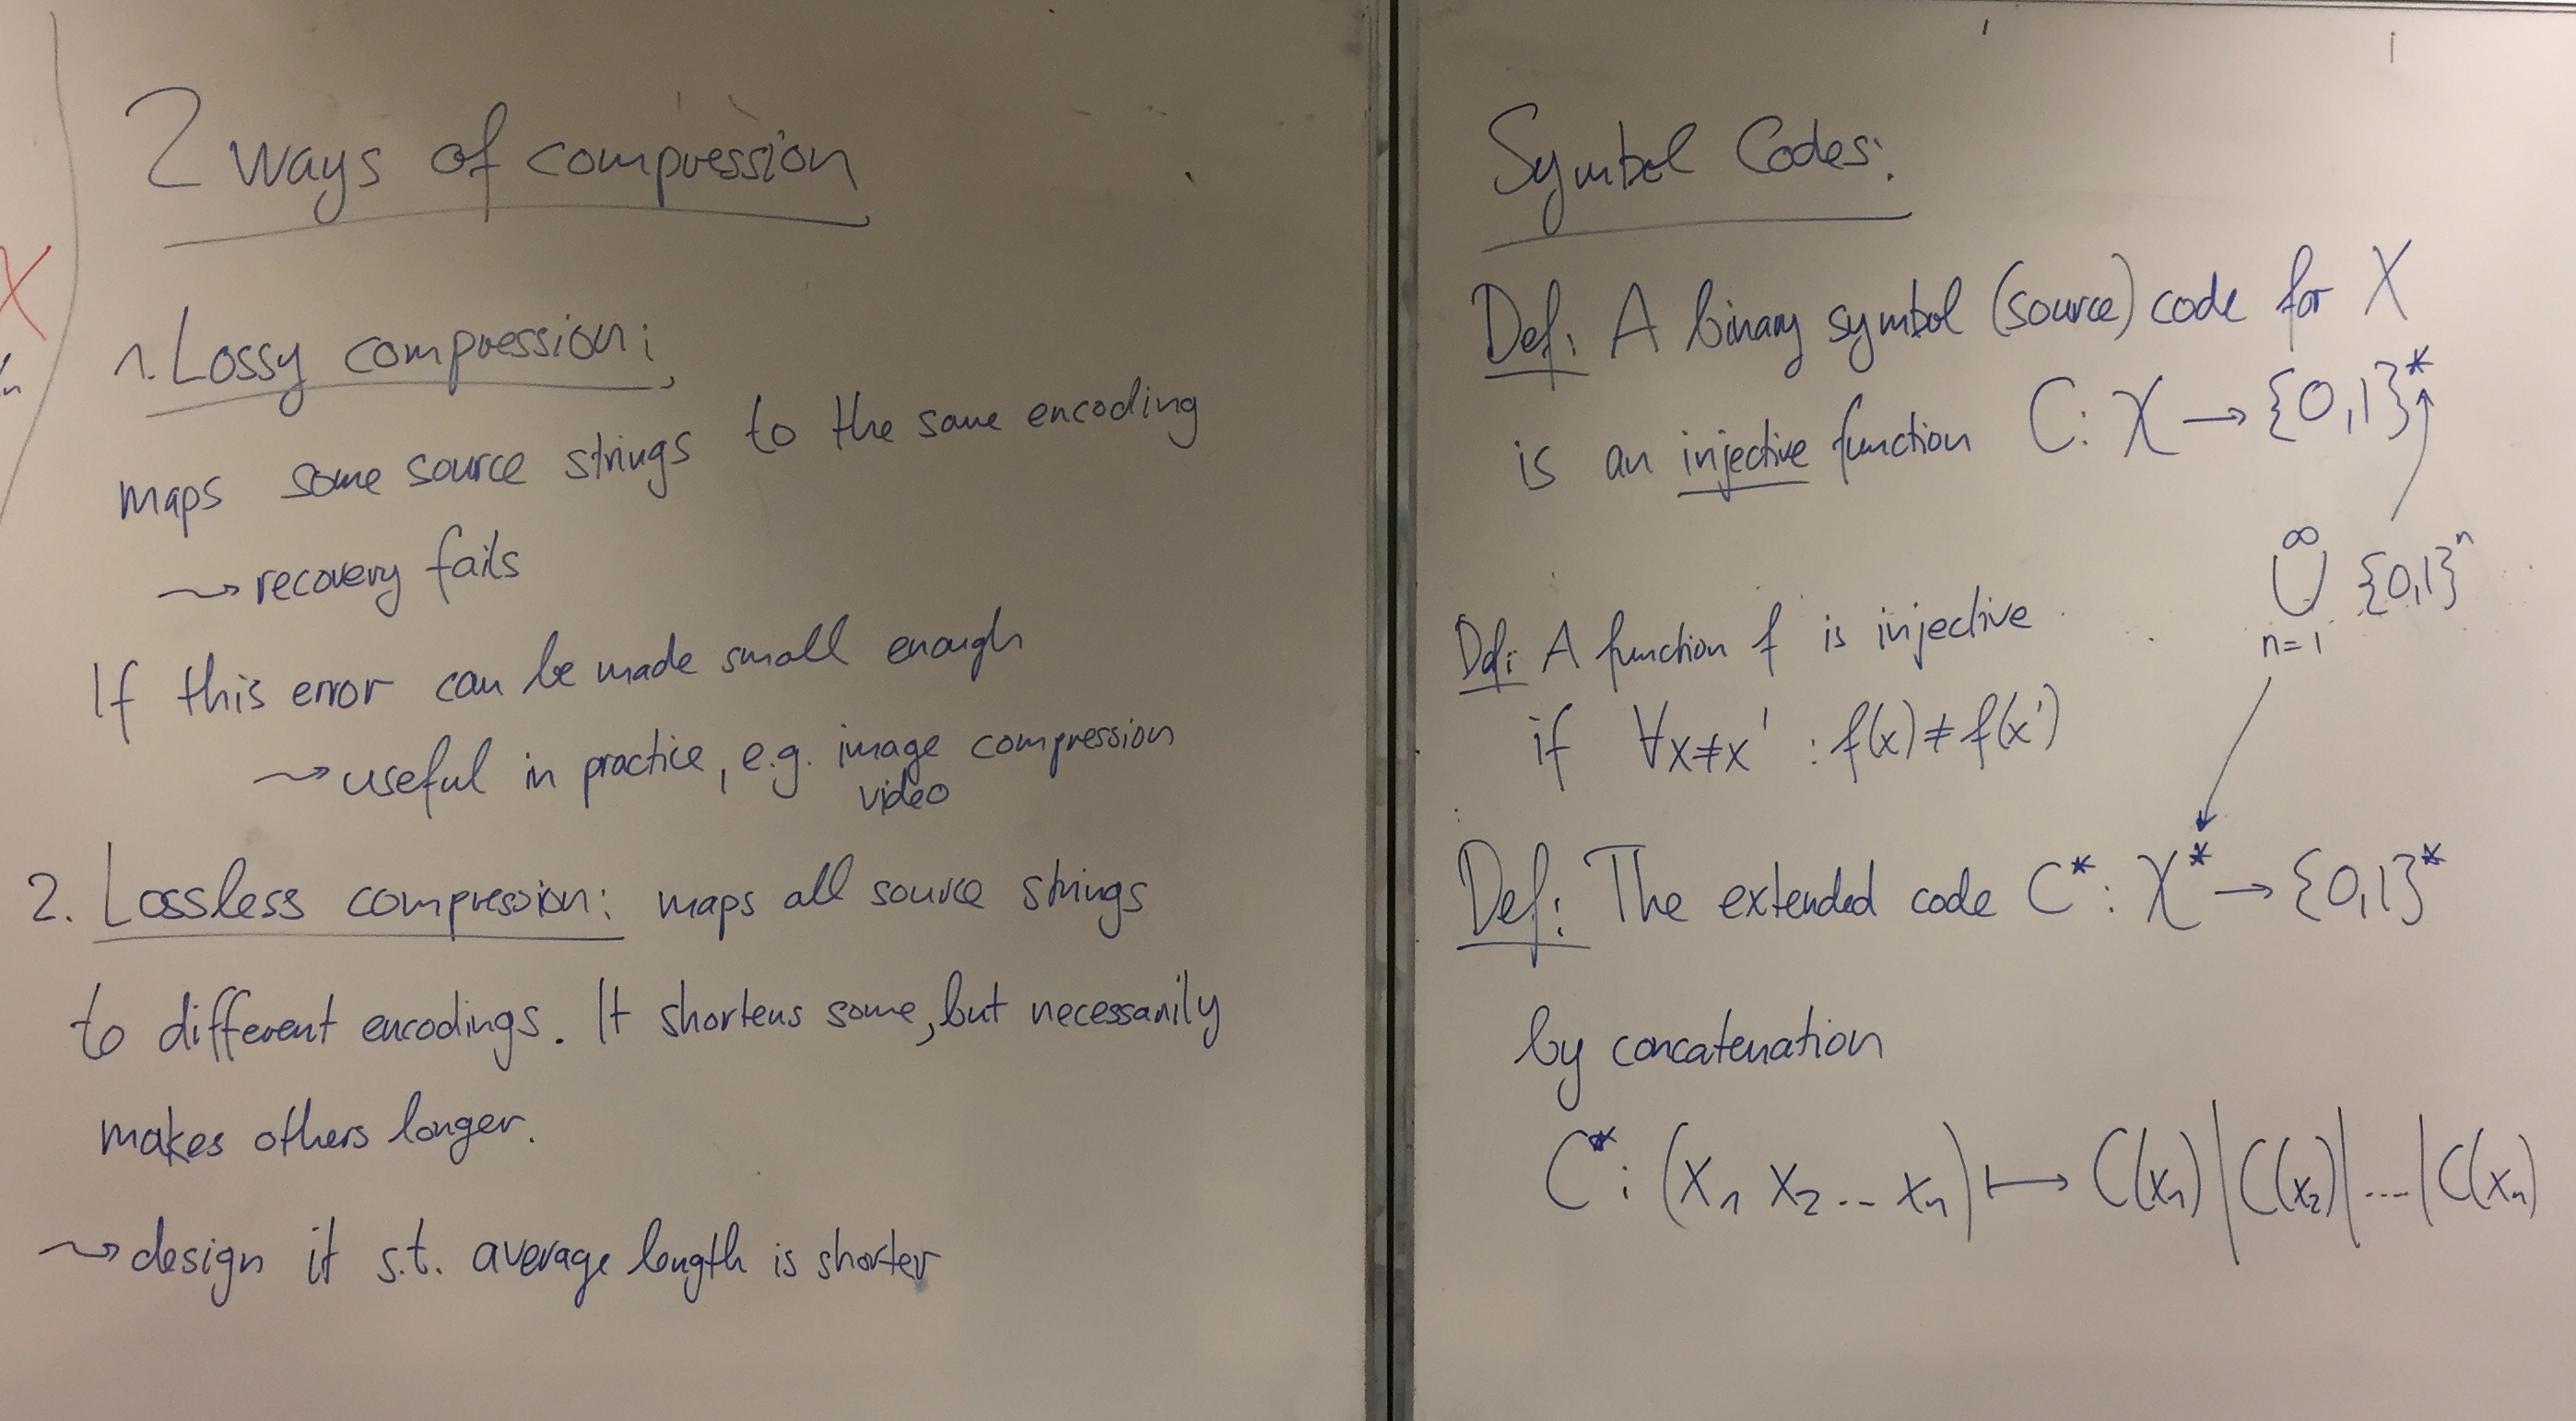 2 ways of compression
1. Lossy compression:
maps some source strings to the same encoding
⇝ recovery fails
If this error can be made small enough
⇝ useful in practice, e.g. image compression
video
2. Lossless compression: maps all source strings
to different encodings. It shortens some, but necessarily
makes others longer.
⇝ design it s.t. average length is shorter
Symbol Codes:
Def: A binary symbol (source) code for X
is an injective function C: 𝒳 → {0,1}*
∞
∪ {0,1}ⁿ
n=1
Def: A function f is injective
if ∀x≠x' : f(x)≠f(x')
Def: The extended code C*: 𝒳* → {0,1}*
by concatenation
C*: (x₁ x₂ ... xₙ) ↦ C(x₁)|C(x₂)|....|C(xₙ)
X
n